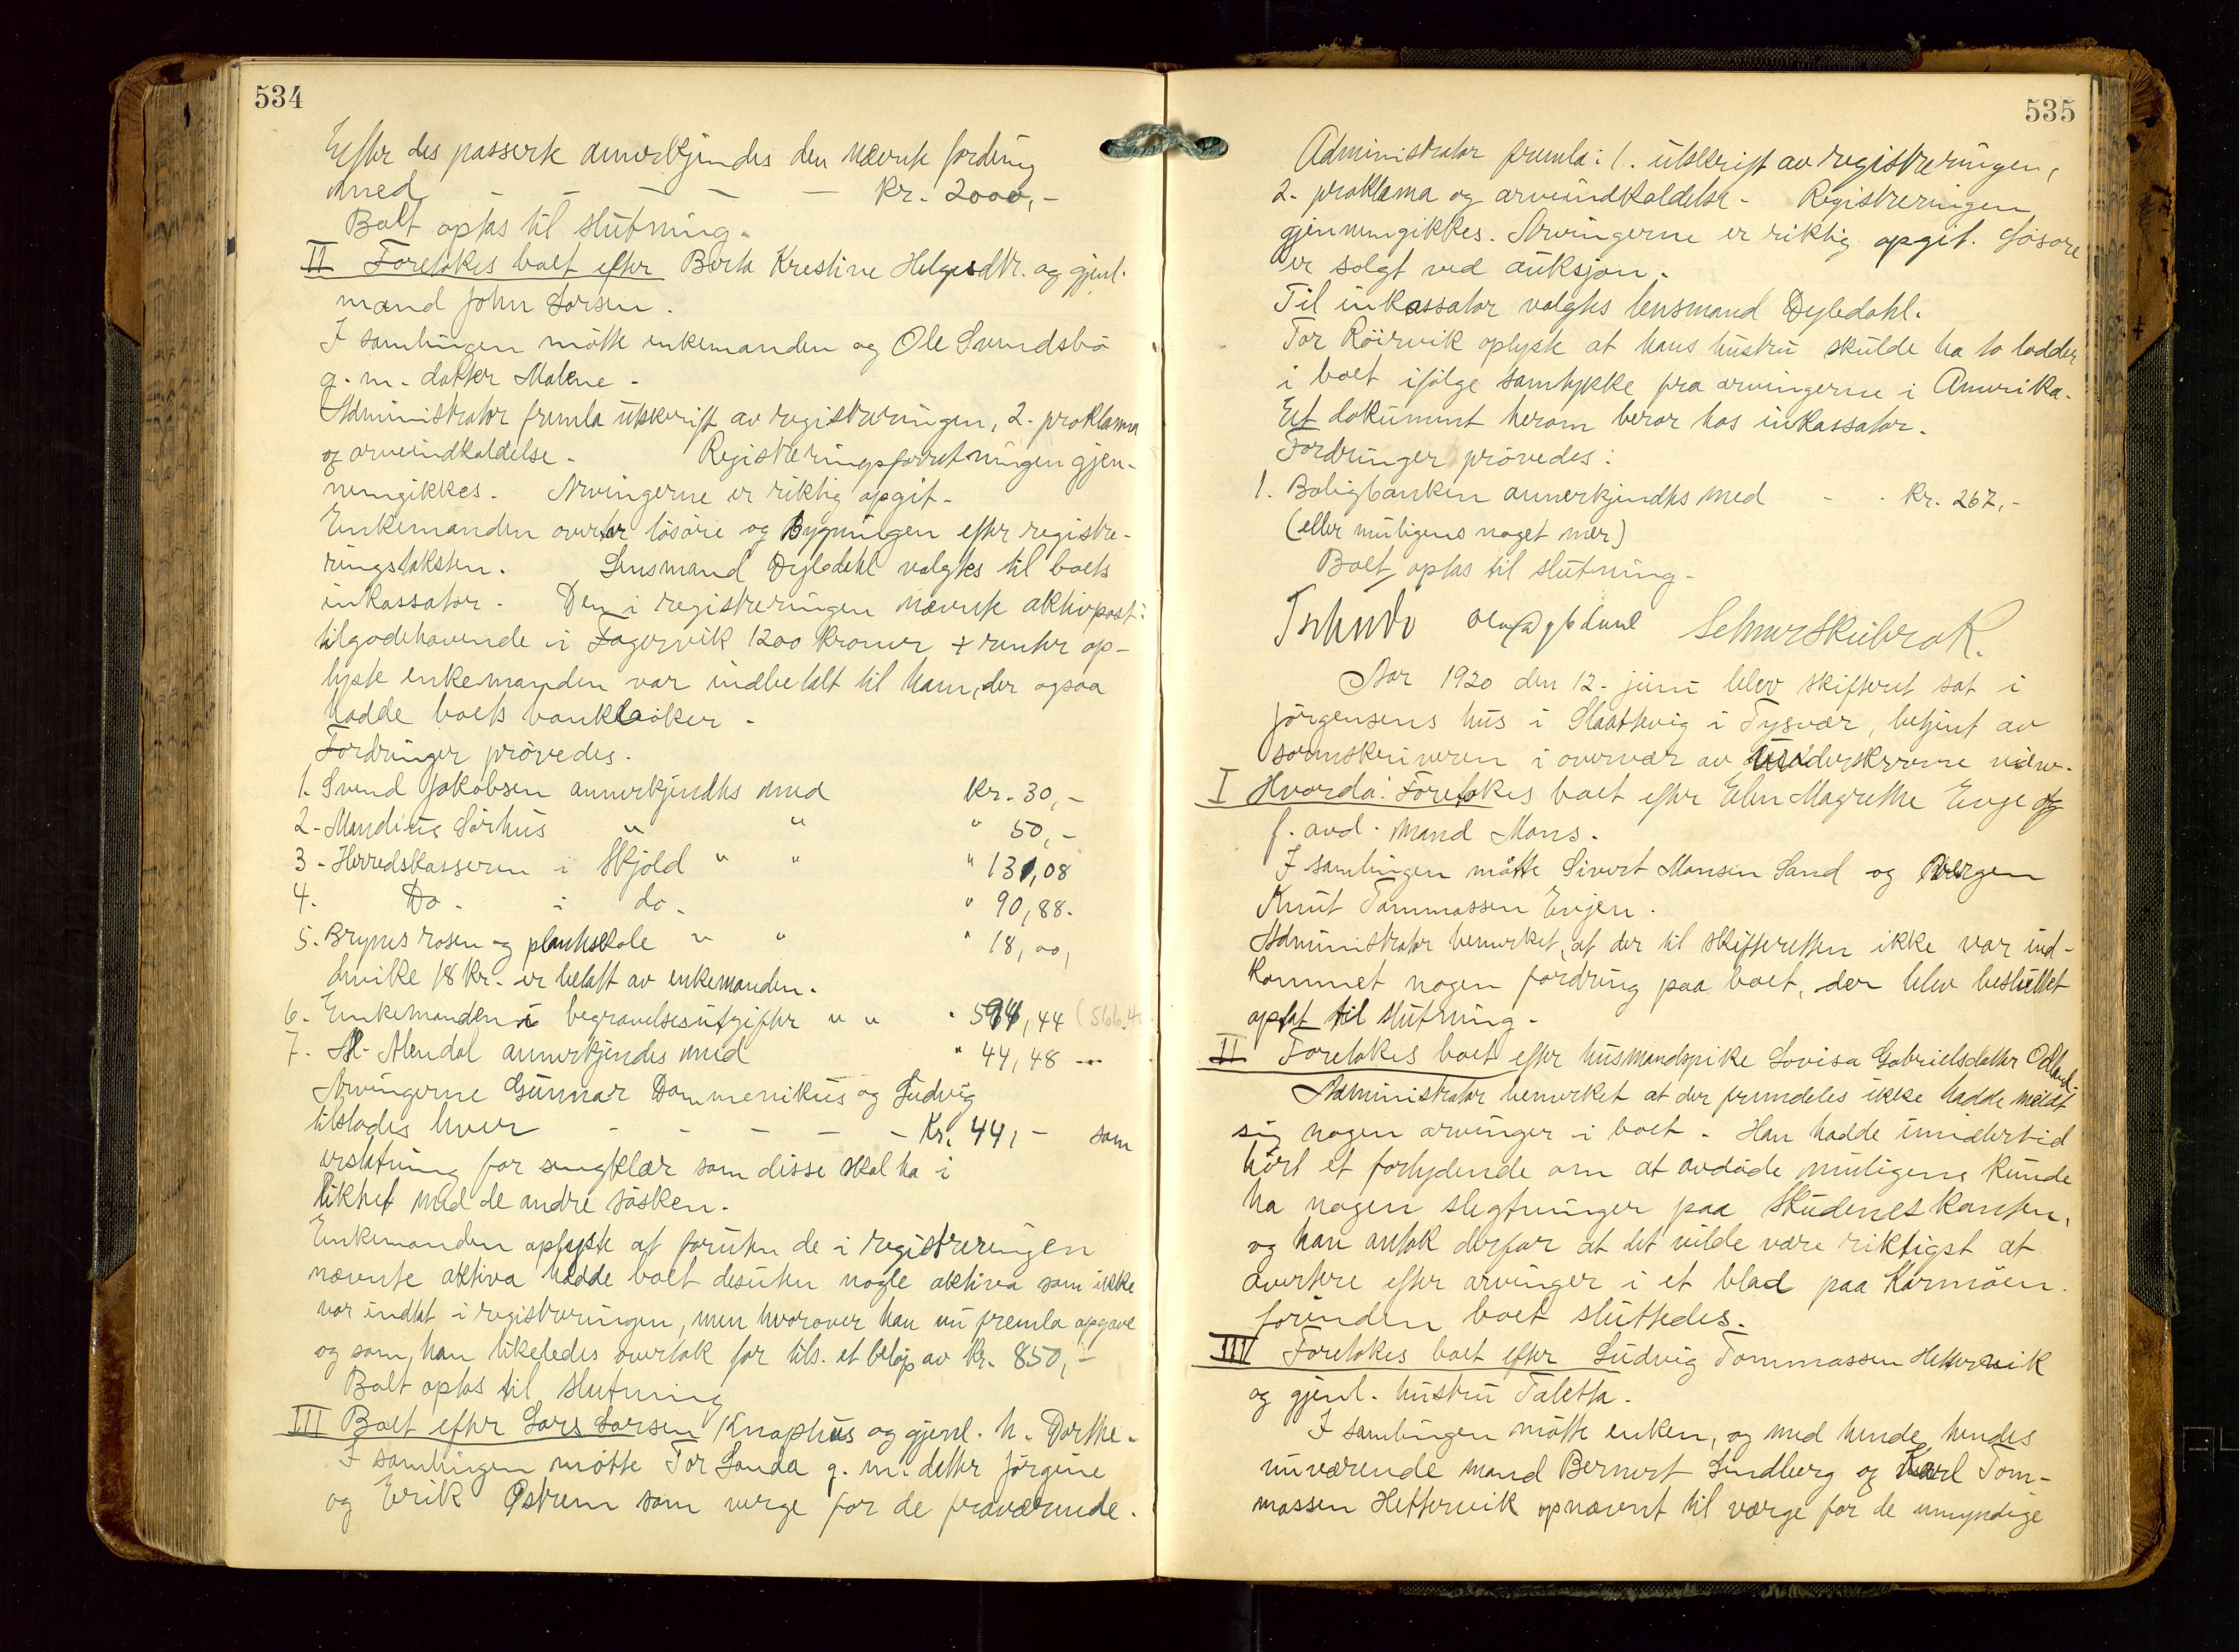 534
Efter det passerte anerkjendes den nævnte fordring
med - - - - - kr. 2000,-
Boet optas til slutning.
II Foretokes boet efter Berta Krestine Helgesdtr. og gjenl.
mand John Larsen.
I samlingen møtte enkemanden og Ole Svendsbø
g. m. datter Malene.
Administrator fremla utskrift av registreringen, 2. proklama
og arveindkaldelse. Registreringsforretningen gjen-
nemgikkes. Arvingerne er riktig opgit.
Enkemanden overtar løsøre og bygningen efter registre-
ringstaksten. Lensmand Dybdahl valgtes til boets
inkassator. Den i registreringen nævnte aktivpost:
tilgodehavende i Fagervik 1200 kroner + renter op-
lyste enkemanden var indbetalt til ham, der ogsaa
hadde boets bankbøker.
Fordringer prøvedes.
1. Svend Jakobsen annerkjendtes med kr. 30,-
2. Mandius Sørhus " " " 50,-
3. Herredskasseren i Skjold " " " 131,08
4. Do. i do. " 90,88.
5. Brynes rosen og planteskole " " " 18,00,
hvilke 18 kr. er betalt av enkemanden.
6. Enkemanden i begravelsesutgifter " " " 594,44 (566,4
7. A. Alendal annerkjendes med " 44,48 ...
Arvingerne Gunnar Dommenikus og Ludvig
tilstodes hver - - - - - Kr. 44,- som
erstatning for sengklær som disse skal ha i
likhet med de andre søsken.
Enkemanden oplyste at foruten de i registreringen
nævnte aktiva hadde boet desuten nogle aktiva som ikke
var indtat i registreringen, men hvorover han nu fremla opgave
og som han likeledes overtok for tils. et beløp av kr. 850,-
Boet optas til slutning
III Boet efter Lars Larsen Knaphus og gjenl. h. Dorthe.
I samlingen møtte Tor Sanda g. m. datter Jørgine
og Erik Østrem som verge for de fraværende.
535
Administrator fremla: 1. utskrift av registreringen,
2. proklama og arveindkaldelse. Registreringen
gjennemgikkes. Arvingerne er riktig opgit. Løsøre
er solgt ved auksjon.
Til inkassator valgtes lensmand Dybdahl.
Tor Røirvik oplyste at hans hustru skulde ha to lodder
i boet ifølge samtykke fra arvingerne i Amerika.
Et dokument herom beror hos inkassator.
Fordringer prøvedes:
1. Boligbanken annerkjendtes med - - kr. 267,-
(eller muligens noget mer)
Boet optas til slutning.
Tschudi Dybdahl
Aar 1920 den 12. juni blev skifteret sat i
Jørgensens hus i Slaattevig i Tysvær, betjent av
sorenskriveren i overvær av underskrevne vidne.
I Hvorda: Foretokes boet efter Elen Magrethe Evje og
f. avd. mand Mons.
I samlingen møtte Sivert Monsen Sand og vergen
Knut Tommassen Evjen.
Administrator bemerket, at der til skifteretten ikke var ind-
kommet nogen fordring paa boet, der blev besluttet
optat til slutning.
II Foretokes boet efter husmandspike Lovisa Gabrielsdatter Odland.
Administrator bemerket at der fremdeles ikke hadde meldt
sig nogen arvinger i boet. Han hadde imidlertid
hørt et forlydende om at avdøde muligens kunde
ha nogen slegtninger paa Skudeneskanten,
og han antok derfor at det vilde være riktigst at
avertere efter arvinger i et blad paa Karmøen.
forinden boet sluttedes.
III Foretokes boet efter Ludvig Tommassen Hettervik
og gjenl. hustru Taletta.
I samlingen møtte enken, og med hende hendes
nuværende mand Bernert Lindberg og Karl Tom-
massen Hettervik opnævnt til værge for de umyndige